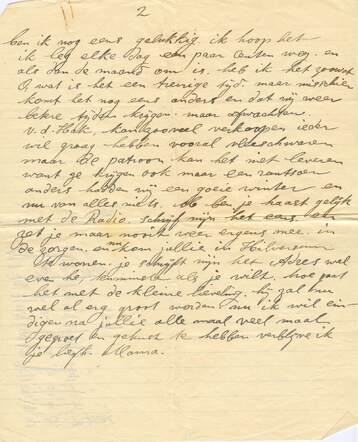 2
ben ik nog eens gelukkig ik hoop het
ik leg elke dag een paar centen weg. en
als dan de maand om is. heb ik het zoowat
O wat is het een treurige tijd. maar misschien
komt het nog eens anders en dat wij weer
betre tijden krijgen. maar afwachten.
v.d. Hoek, kan zooveel verkoopen ieder
wil graag hebben vooral vleeschwaren
maar de patroon kan het niet leveren
want ze krijgen ook maar een rantsoen
anders hadden wij een goeie winter en
nu van alles niets. ben je haast gelijk
met de Radio. schrijf mijn het eens. en
zet je maar nooit weer ergens mee. in
de zorgen. en kom jullie in Hilversum
te wonen. je schrijft mijn het Adres wel
even he, tenminsten als je wilt. hoe gaat
het met de kleine lieveling. hij zal nu
wel al erg groot worden nu ik wil ein
digen na jullie alle maal veel maal
gegroet en gekust te hebben verblijve ik
je liefh. Mama.